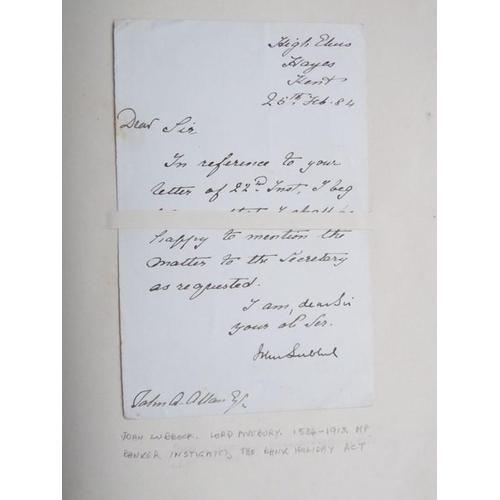 High Elms
Hayes
Kent
25th Feb. 84
Dear Sir
In reference to your
letter of 22nd Inst, I beg
happy to mention the
matter to the Secretary
as requested.
I am, dear Sir
your ob Ser.
John Lubbock
John A. Allan Esq
JOHN LUBBOCK. LORD AVEBURY. 1834-1913. MP
BANKER INSTIGATED THE BANK HOLIDAY ACT